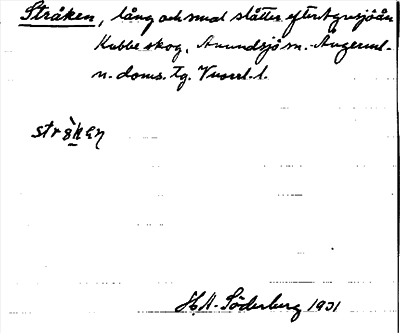 Stråken, lång och smal slåtter efter Agnsjöån
Kubbe skog, Anundsjö sn. Ångerml-
n. doms. tg. Vnorrl. l.
stråken
H.A. Söderberg 1931